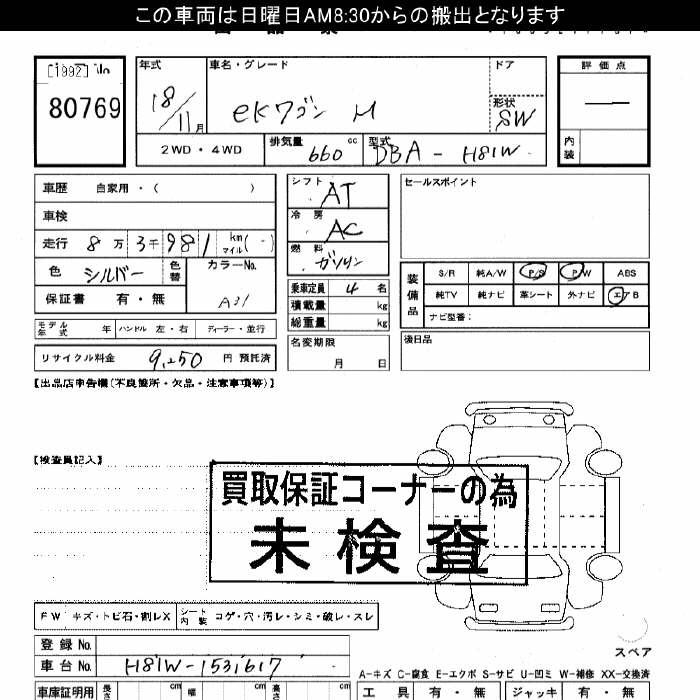 この車両は日曜日AM8:30からの搬出となります
[1992] No
80769
年式 18/11月
車名・グレード ekワゴン M
ドア
形状 SW
評価点 ―
内装
2WD・4WD
排気量 660 cc
型式 DBA-H81W
車歴 自家用・( )
車検
走行 8万3千981 km マイル(-)
色 シルバー 色替
カラーNo. A31
保証書 有・無
シフト AT
冷房 AC
燃料 ガソリン
乗車定員 4 名
積載量 kg
総重量 kg
セールスポイント
装備品
S/R 純A/W P/S P/W ABS
純TV 純ナビ 革シート 外ナビ エアB
ナビ型番:
モデル年式 年 ハンドル 左・右 ディーラー・並行
リサイクル料金 9,250 円 預託済
名変期限 月 日
後日品
【出品店申告欄(不良箇所・欠品・注意事項等)】
【検査員記入】
買取保証コーナーの為
未検査
FW キズ・トビ石・割レX シート内装 コゲ・穴・汚レ・シミ・破レ・スレ
登録No.
車台No. H81W-1531617
スペア
A-キズ C-腐食 E-エクボ S-サビ U-凹ミ W-補修 XX-交換済
車庫証明用 長さ cm 幅 cm 高さ cm
工具 有・無 ジャッキ 有・無